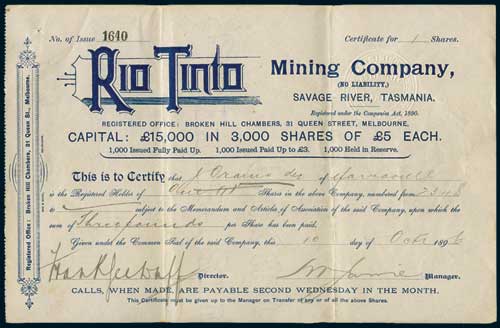 No. of Issue 1640
Certificate for 1 Shares.
RIO TINTO
Mining Company,
(NO LIABILITY,)
SAVAGE RIVER, TASMANIA.
Registered under the Companies Act, 1890.
REGISTERED OFFICE: BROKEN HILL CHAMBERS, 31 QUEEN STREET, MELBOURNE.
CAPITAL: £15,000 IN 3,000 SHARES OF £5 EACH.
1,000 Issued Fully Paid Up. 1,000 Issued Paid Up to £3. 1,000 Held in Reserve.
This is to Certify that of
is the Registered Holder of Share in the above Company, numbered from
to subject to the Memorandum and Articles of Association of the said Company, upon which the
sum of Three pounds per Share has been paid.
Given under the Common Seal of the said Company, this 10 day of Octr 1896
Director.
Manager.
CALLS, WHEN MADE, ARE PAYABLE SECOND WEDNESDAY IN THE MONTH.
This Certificate must be given up to the Manager on Transfer of any or of all the above Shares.
Registered Office: Broken Hill Chambers, 31 Queen St., Melbourne.